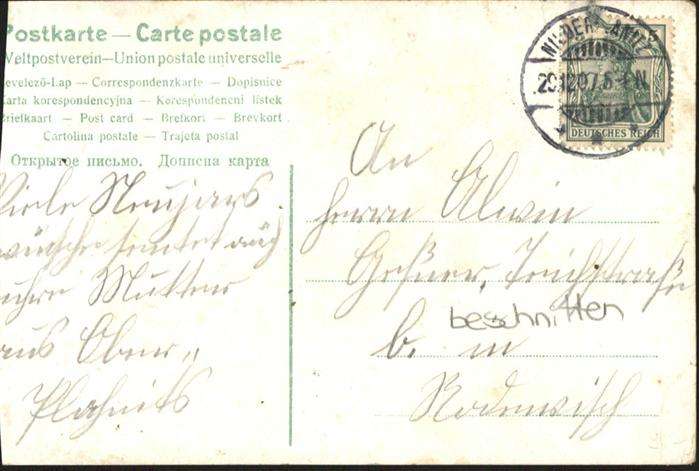 Postkarte — Carte postale
Weltpostverein — Union postale universelle
Levelező-Lap — Correspondenzkarte — Dopisnice
Karta korespondencyjna — Korespondenční lístek
Briefkaart — Post card — Brefkort — Brevkort
Cartolina postale — Trajeta postal
Открытое письмо. Дописна карта
29.12.07. 5-6 N.
DEUTSCHES REICH
Viele Neujars
wünsche sentet auch
Mutter
aus Ober„
Plahnits
An
Herrn Alwin
Geßner, Teichstraße
beschnitten
b. m
Rodewisch